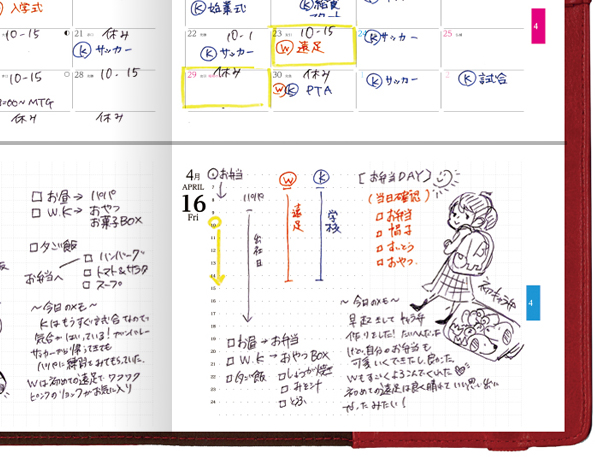 入学式
始業式
給食
スタート
4
10-15
21 休み
サッカー
22 10-1
サッカー
23 10-15
遠足
24
サッカー
25
10-15
28 10-15
29 休み
30 休み
PTA
サッカー
2
試合
00~MTG
休み
休み
お昼→パパ
W.K→おやつ
お菓子BOX
夕ご飯
お弁当へ
ハンバーグ
トマト&サラダ
スープ
~今日のメモ~
Kはもうすぐ試合なので
気合がはいっている!
サッカーから帰ってきても
パパに練習
Wは初めての遠足でワクワク
ピンクのリュックがお気に入り
4月
APRIL
16
Fri
お弁当
パパ
出社日
W
遠足
K
学校
[お弁当DAY]
(当日確認)
お弁当
帽子
すいとう
おやつ
7
8
9
10
11
12
13
14
15
16
17
18
19
20
21
22
23
24
お昼→お弁当
W.K→おやつBOX
夕ご飯
しょうが焼き
おミソ汁
とうふ
ネコのキャラ弁
~今日のメモ~
早起きしてキャラ弁
作りました!たいへんだった
けど、自分のお弁当も
可愛いくできたし、良かった。
Wもすごくよろこんでくれた
初めての遠足は良く晴れていい思い出に
なったみたい!
4